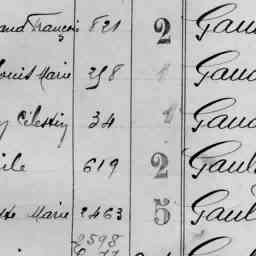 and François 821 2 Gau
Louis Marie 258 1 Gau
y Célestin 34 1 Gau
ile 619 2 Gaul
Marie 2463 5 Gaul
2598